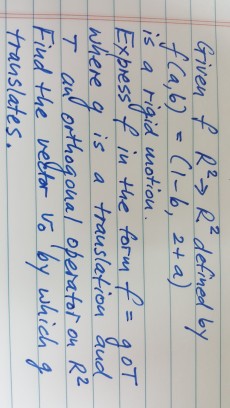 Given f R² → R² defined by
f(a,b) = (1-b, 2+a)
is a rigid motion.
Express f in the form f = g o T
where g is a translation and
T an orthogonal operator on R²
Find the vector v₀ by which g
translates.